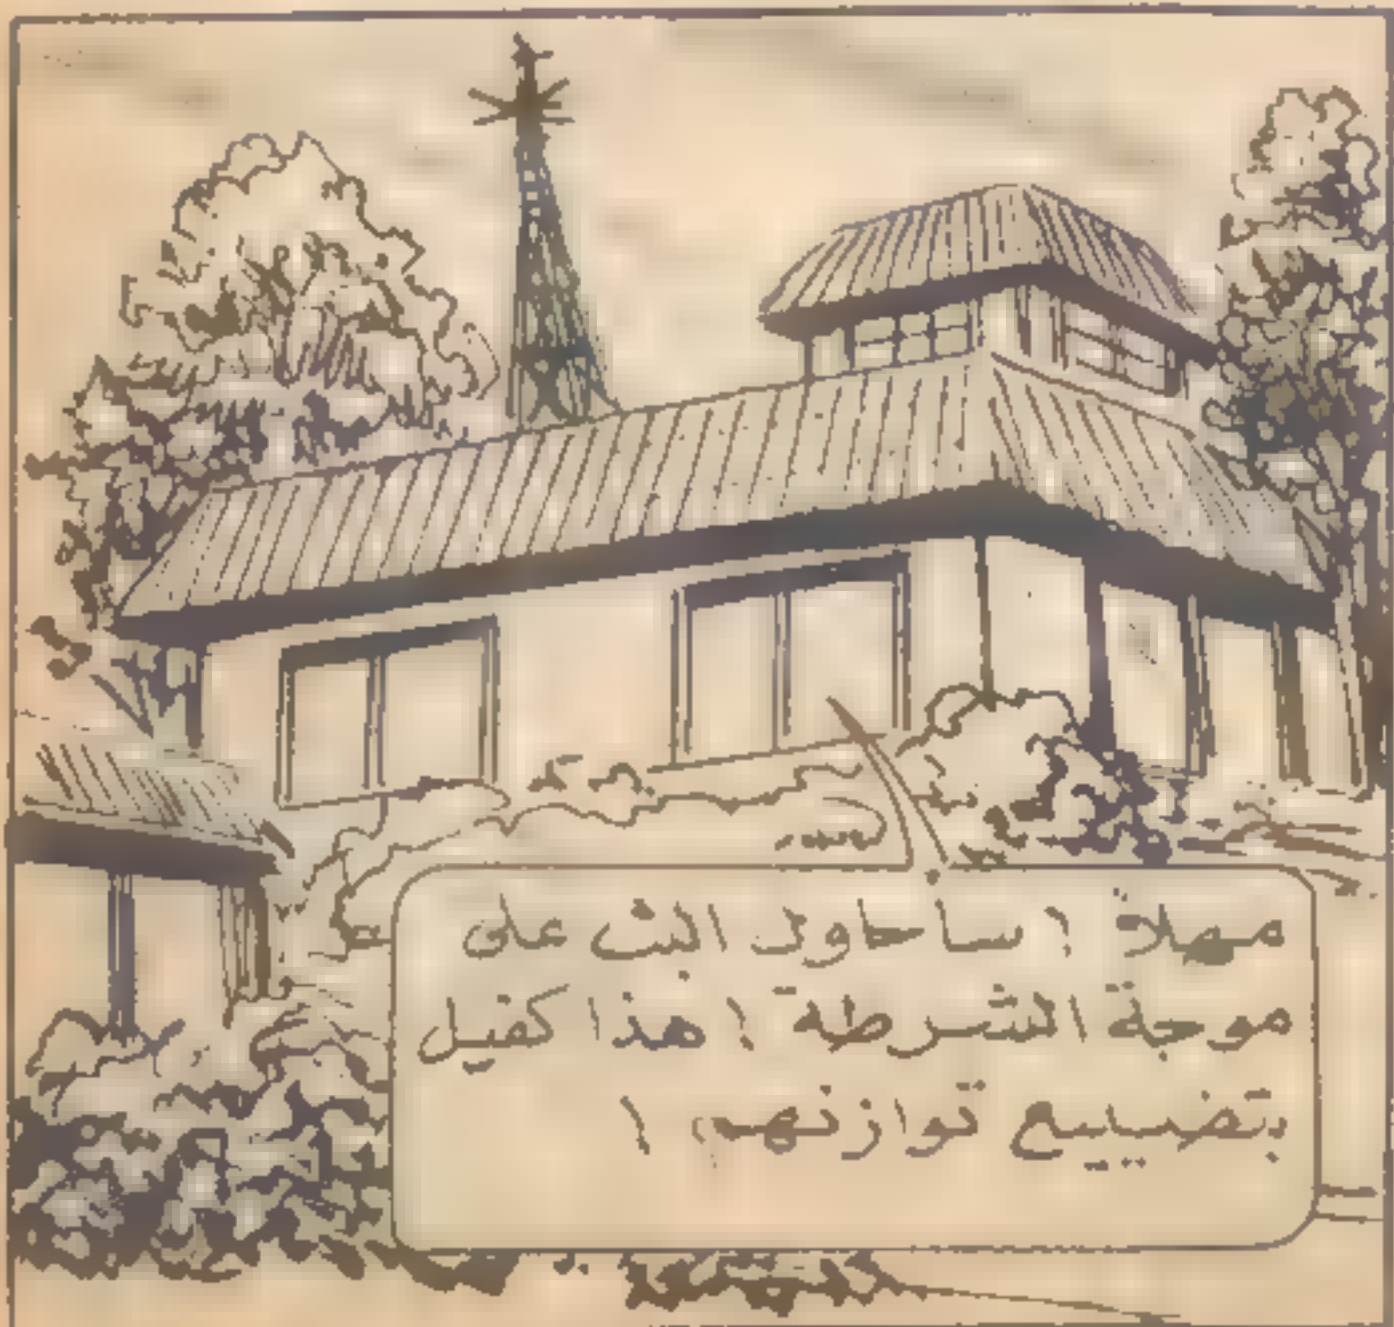 مهلاً ! سأحاول البث على
موجة الشرطة ! هذا كفيل
بتضييع توازنهم !